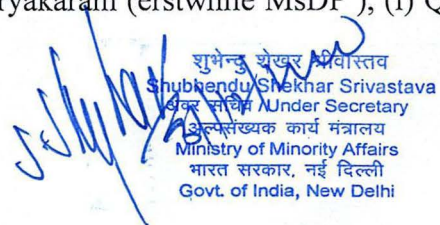 ryakaram (erstwhile MsDP ), (i) Q
शुभेन्दु शेखर श्रीवास्तव
Shubhendu Shekhar Srivastava
अवर सचिव /Under Secretary
अल्पसंख्यक कार्य मंत्रालय
Ministry of Minority Affairs
भारत सरकार, नई दिल्ली
Govt. of India, New Delhi